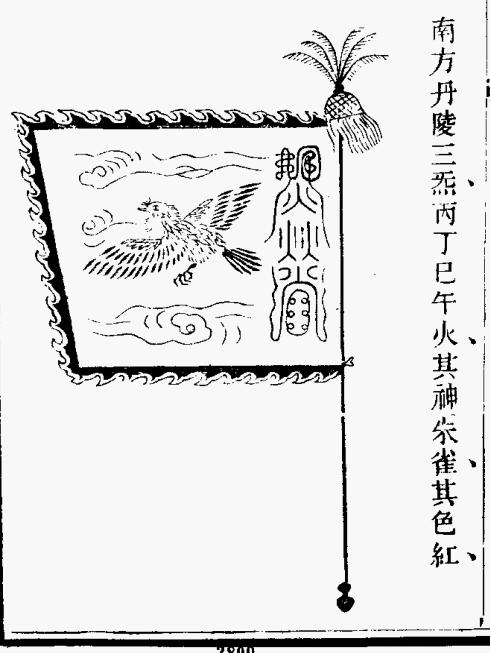 南方丹陵三炁丙丁巳午火其神朱雀其色紅